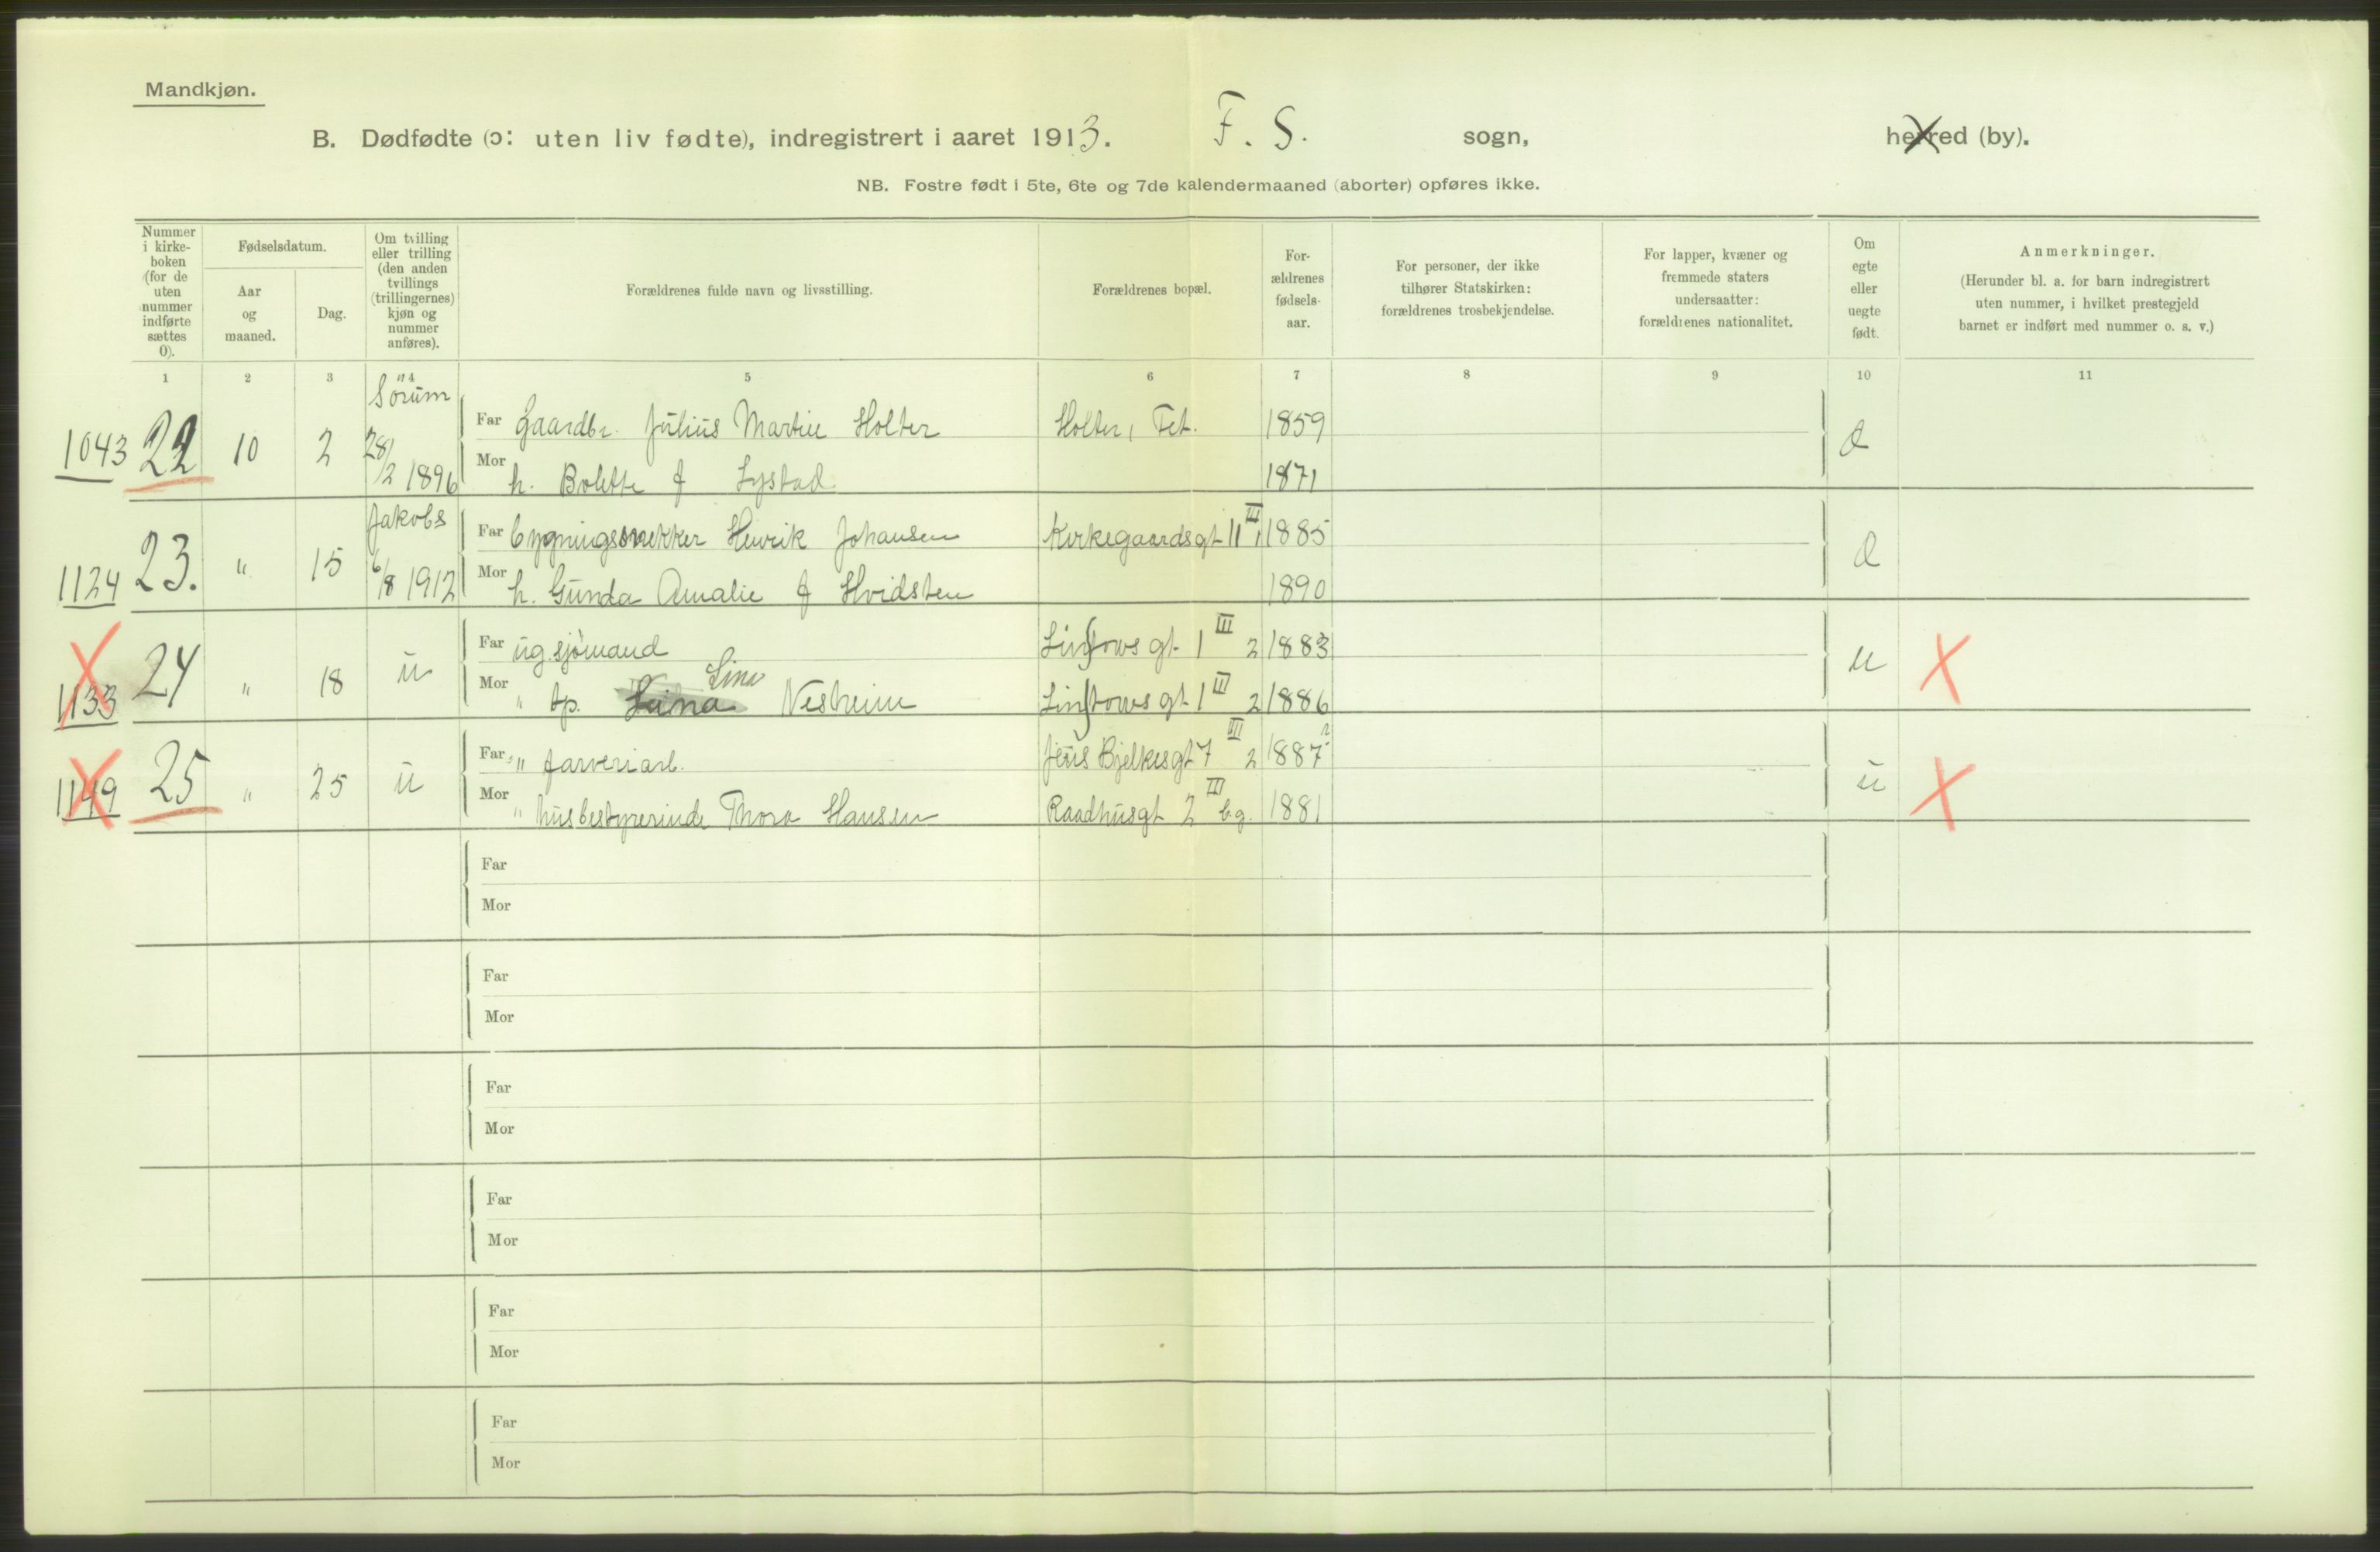 Mandkjøn.
B. Dødfødte (ɔ: uten liv fødte), indregistrert i aaret 1913. F. S. sogn, herred (by).
NB. Fostre født i 5te, 6te og 7de kalendermaaned (aborter) opføres ikke.
Nummer
i kirke-
boken
(for de
uten
nummer
indførte
sættes
0).
Fødselsdatum.
Aar
og
maaned.
Dag.
Om tvilling
eller trilling
(den anden
tvillings
(trillingernes)
kjøn og
nummer
anføres).
Forældrenes fulde navn og livsstilling.
Forældrenes bopæl.
For-
ældrenes
fødsels-
aar.
For personer, der ikke
tilhører Statskirken:
forældrenes trosbekjendelse.
For lapper, kvæner og
fremmede staters
undersaatter:
forældrenes nationalitet.
Om
egte
eller
uegte
født.
Anmerkninger.
(Herunder bl. a. for barn indregistrert
uten nummer, i hvilket prestegjeld
barnet er indført med nummer o. s. v.)
1 2 3 4 5 6 7 8 9 10 11
Sörum
1043 22 10 2 28/2 1896
Far Gaardbr. Julius Martin Holter Holter, Fet. 1859
Mor h. Bolette f Lystad 1871
Jakobs
1124 23. " 15 6/8 1912
Far bygningssnekker Henrik Johansen Kirkegaardsgt 11 III 1 1885
Mor h. Gunda Amalie f Hvidsten 1890
1133 24 " 18 u
Far ug. sjömand Linstows gt. 1 III 2 1883 u
Mor " tp. Lina Nesheim Linstows gt 1 III 2 1886
1149 25 " 25 u
Far " farveriarb. Jens Bjelkesgt 7 III 2 1887 u
Mor " husbestyrerinde Thora Hansen Raadhusgt 2 III b.g. 1881
Far
Mor
Far
Mor
Far
Mor
Far
Mor
Far
Mor
Far
Mor